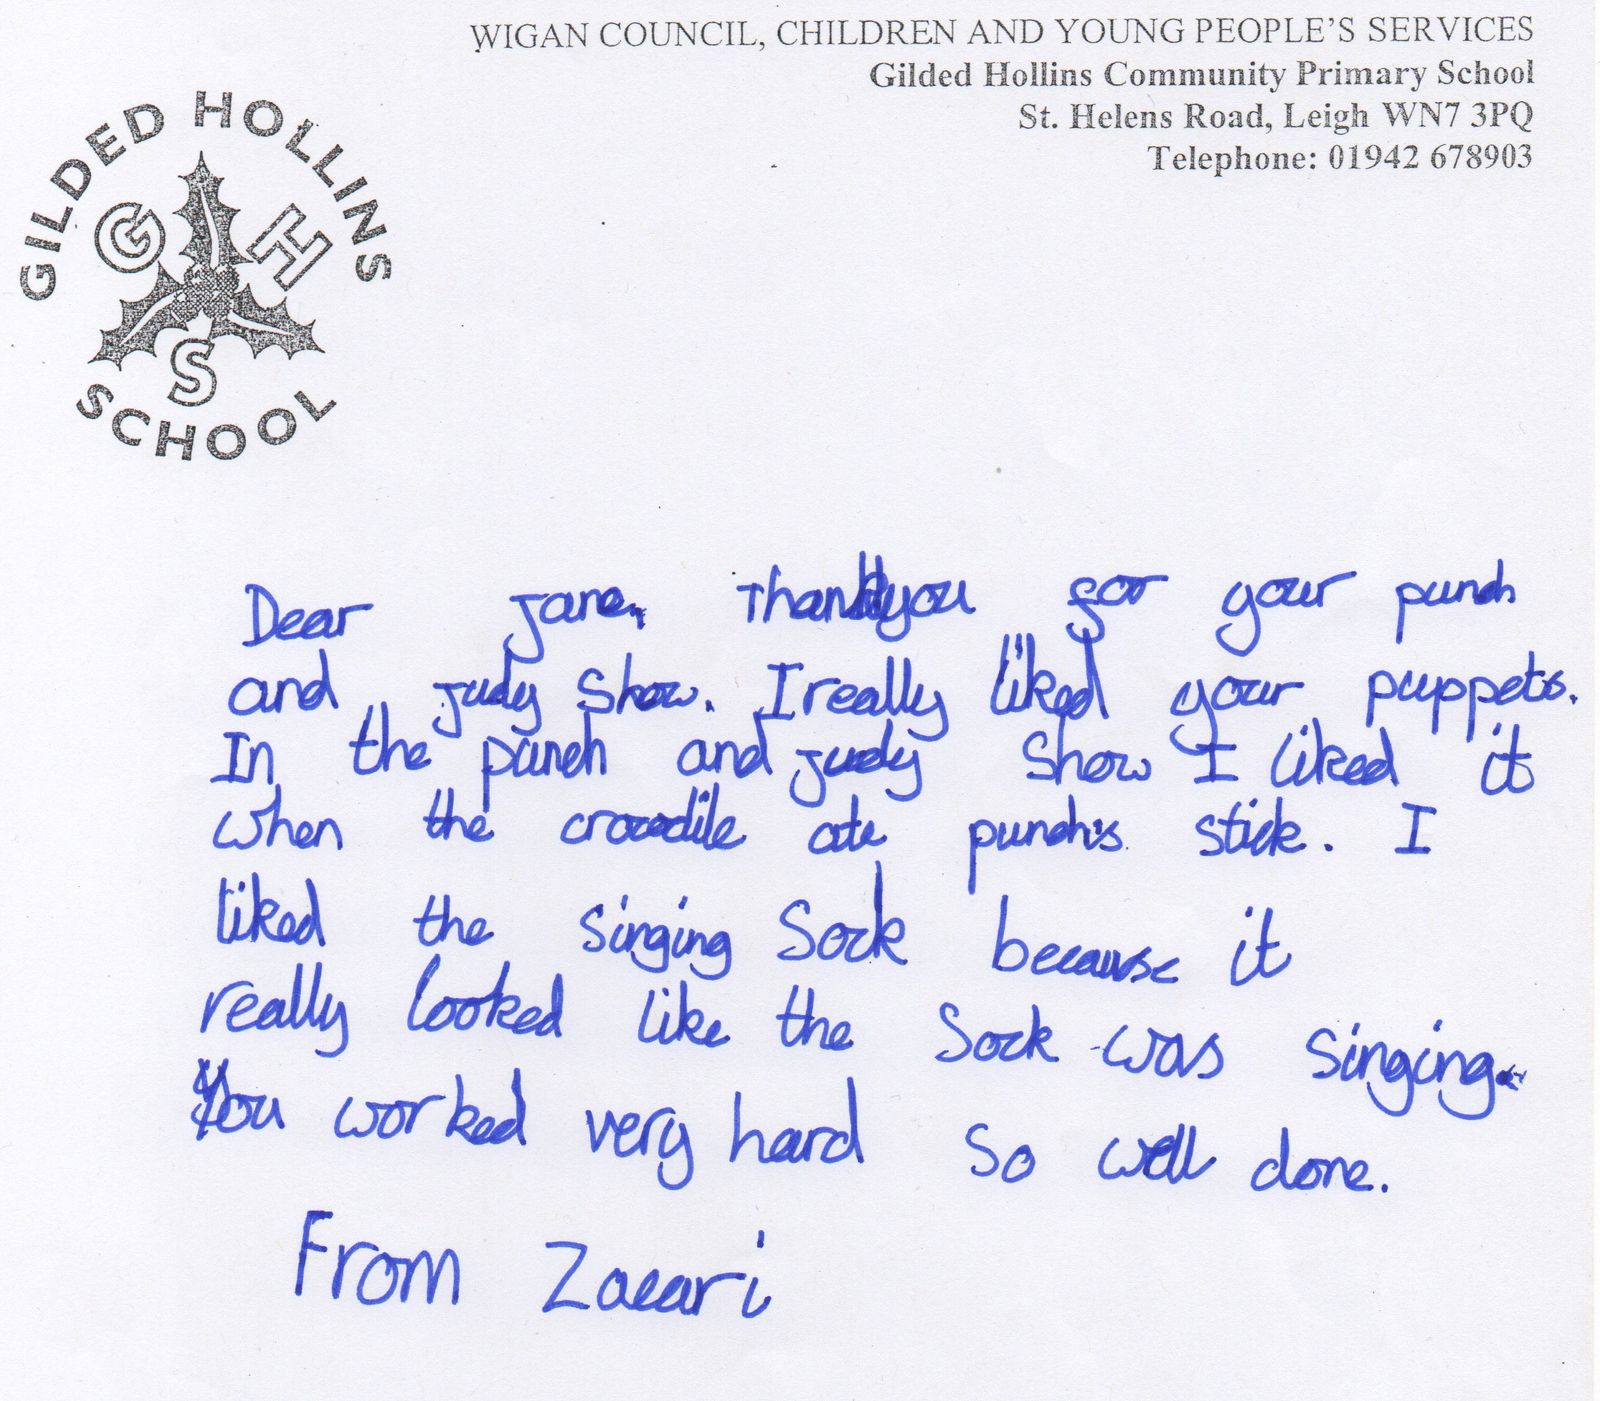 WIGAN COUNCIL, CHILDREN AND YOUNG PEOPLE'S SERVICES
Gilded Hollins Community Primary School
St. Helens Road, Leigh WN7 3PQ
Telephone: 01942 678903
GILDED HOLLINS
G H
S
SCHOOL
Dear Jane, Thankyou for your punch
and judy show. I really liked your puppets.
In the punch and judy show I liked it
when the crocodile ate punch's stick. I
liked the singing Sock because it
really looked like the Sock was singing.
You worked very hard so well done.
From Zaccari